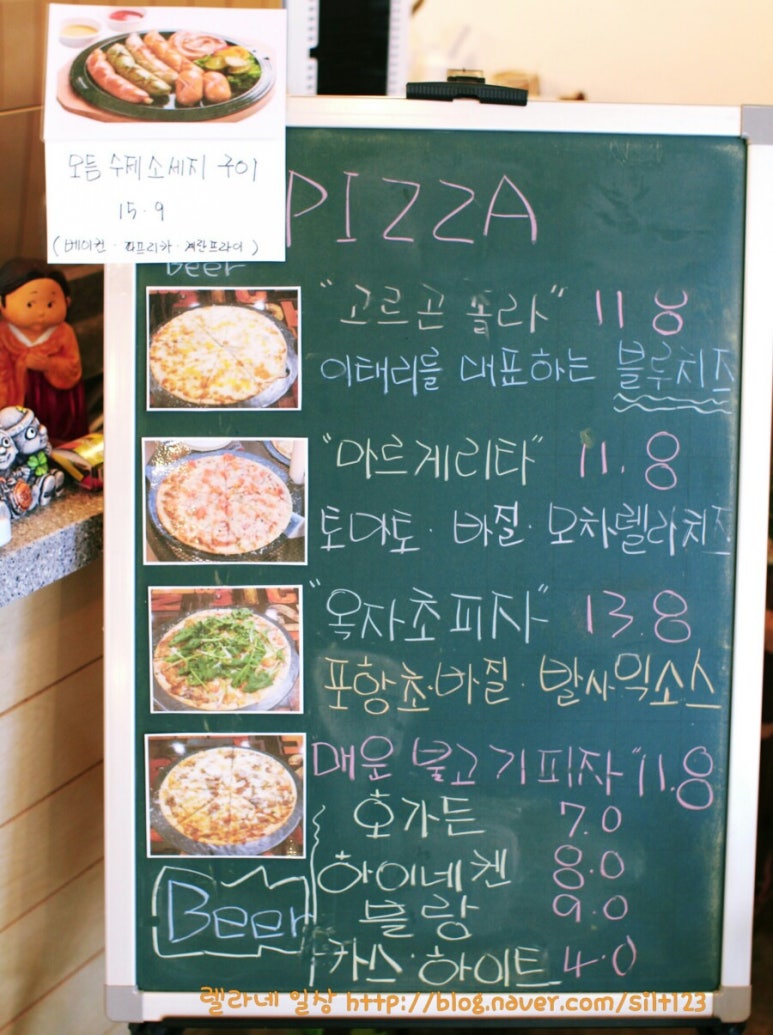 모듬 수제소세지 구이
15.9
(베이컨 · 파프리카 · 계란프라이)
PIZZA
Beer
"고르곤졸라" 11.8
이태리를 대표하는 블루치즈
"마르게리타" 11.8
토마토 · 바질 · 모차렐라치즈
"옥자초피자" 13.8
포항초·바질·발사믹소스
매운 불고기피자" 11.8
호가든 7.0
하이네켄 8.0
블랑 9.0
카스·하이트 4.0
Beer
렐라네 일상 http://blog.naver.com/silt123